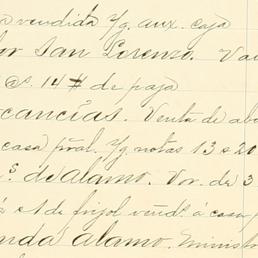 a vendida s/g. aux. caja
or San Lorenzo. Va
@s. 14 # de paja
cancías. Venta de ab
casa pral. s/g notas 13 a 20
s de alamo. Vor. de 3
á @ 1 de frijol vend. á casa
nda Alamo. Ministr